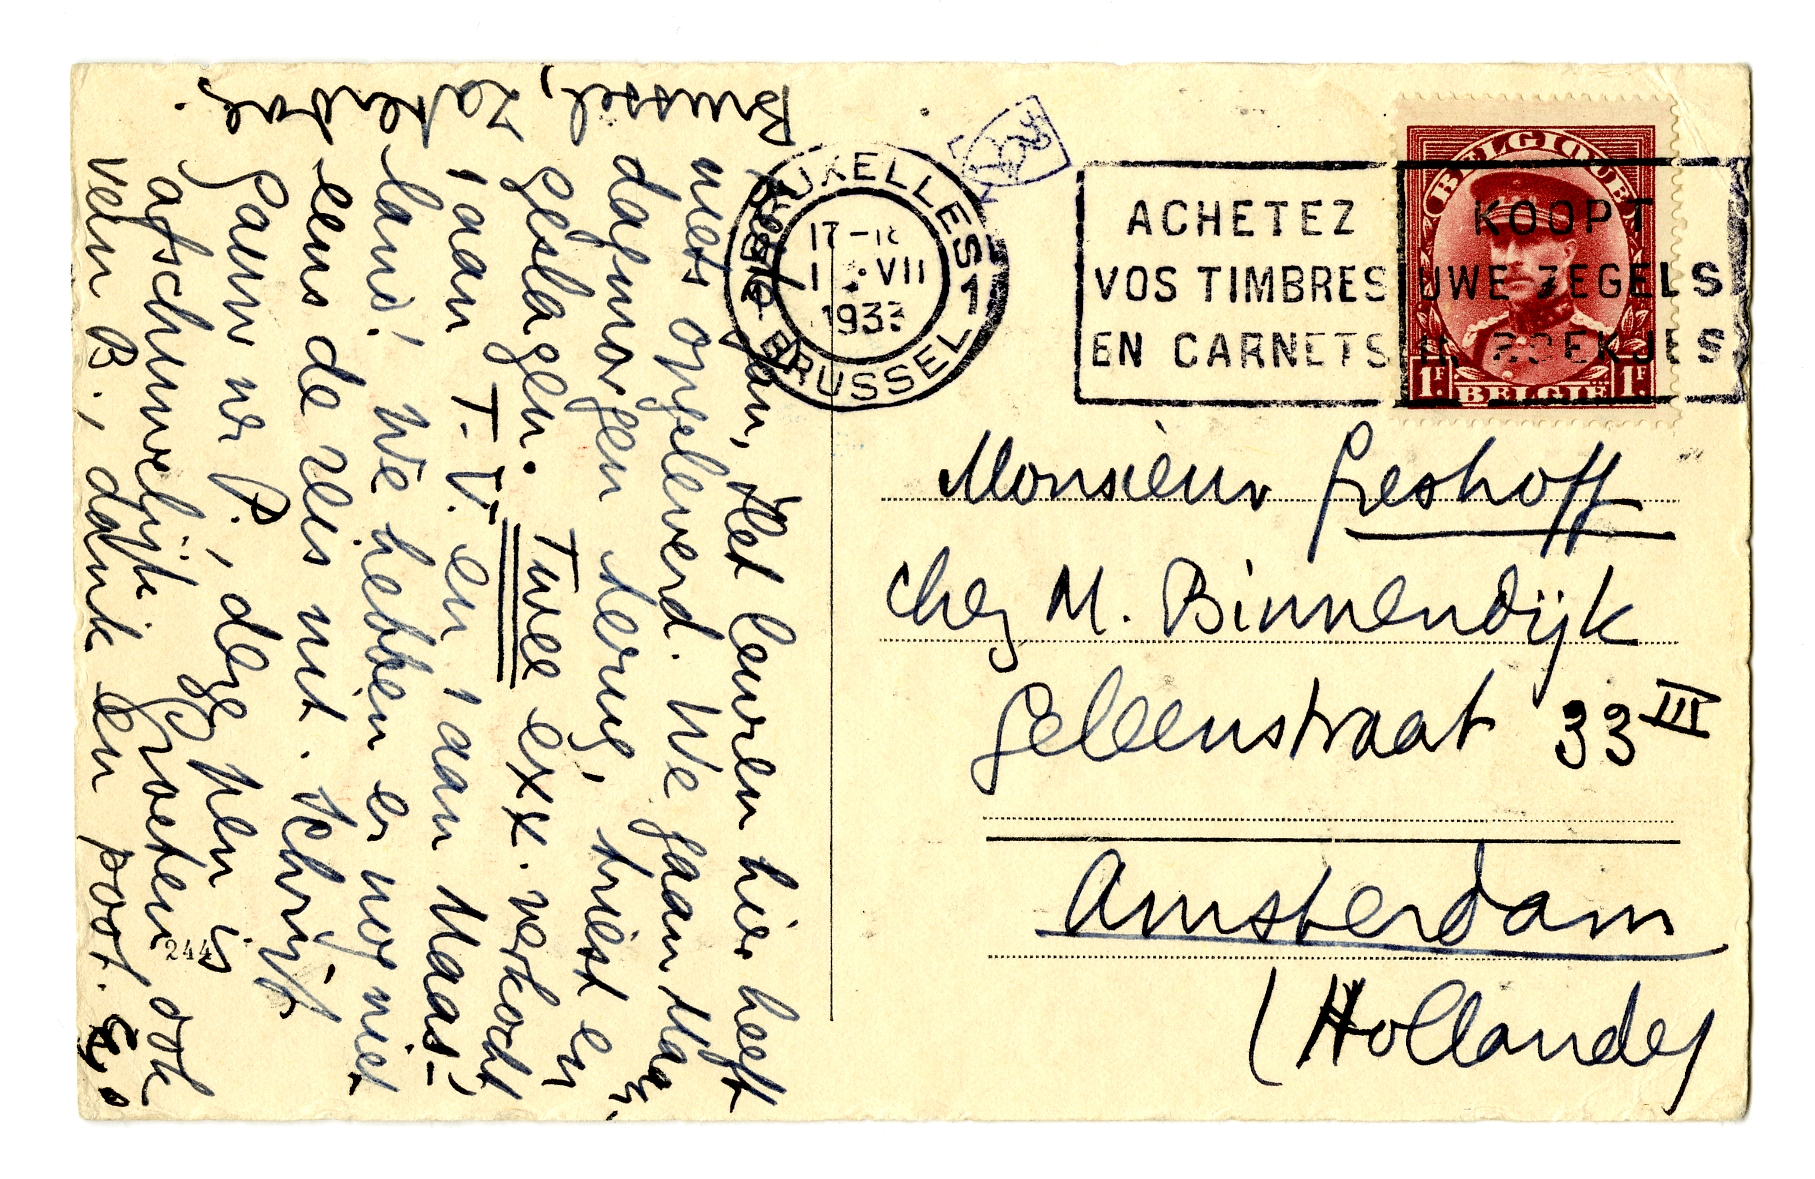 Brussel, Zaterdag.
Beste Jan, Het leuren hier heeft
niets opgeleverd. We gaan Maan-
dagmorgen terug, triest en
geslagen. Twee exx. verkocht
1 aan T.-V. en 1 aan Maas-
land! We hebben er nog niet
eens de reis uit. Schrijf
gauw nr P., deze pen is
afschuwelijk Groeten ook
van B., dank en poot. E.
244
BRUXELLES 1
17-18
VII
1933
BRUSSEL
ACHETEZ
VOS TIMBRES
EN CARNETS
KOOPT
UWE ZEGELS
IN BOEKJES
BELGIQUE
1F 1F
BELGIË
Monsieur Greshoff
chez M. Binnendijk
Geleenstraat 33 III
Amsterdam
(Hollande)